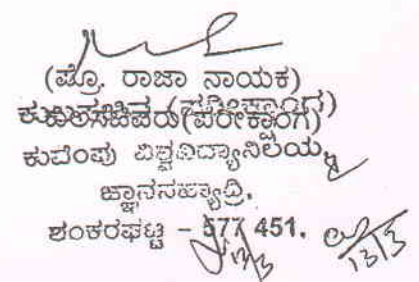 (ಪ್ರೊ. ರಾಜಾ ನಾಯಕ)
ಕುಲಸಚಿವರು(ಪರೀಕ್ಷಾಂಗ)
ಕುವೆಂಪು ವಿಶ್ವವಿದ್ಯಾನಿಲಯ,
ಜ್ಞಾನಸಹ್ಯಾದ್ರಿ,
ಶಂಕರಘಟ್ಟ – 577 451.
13/3